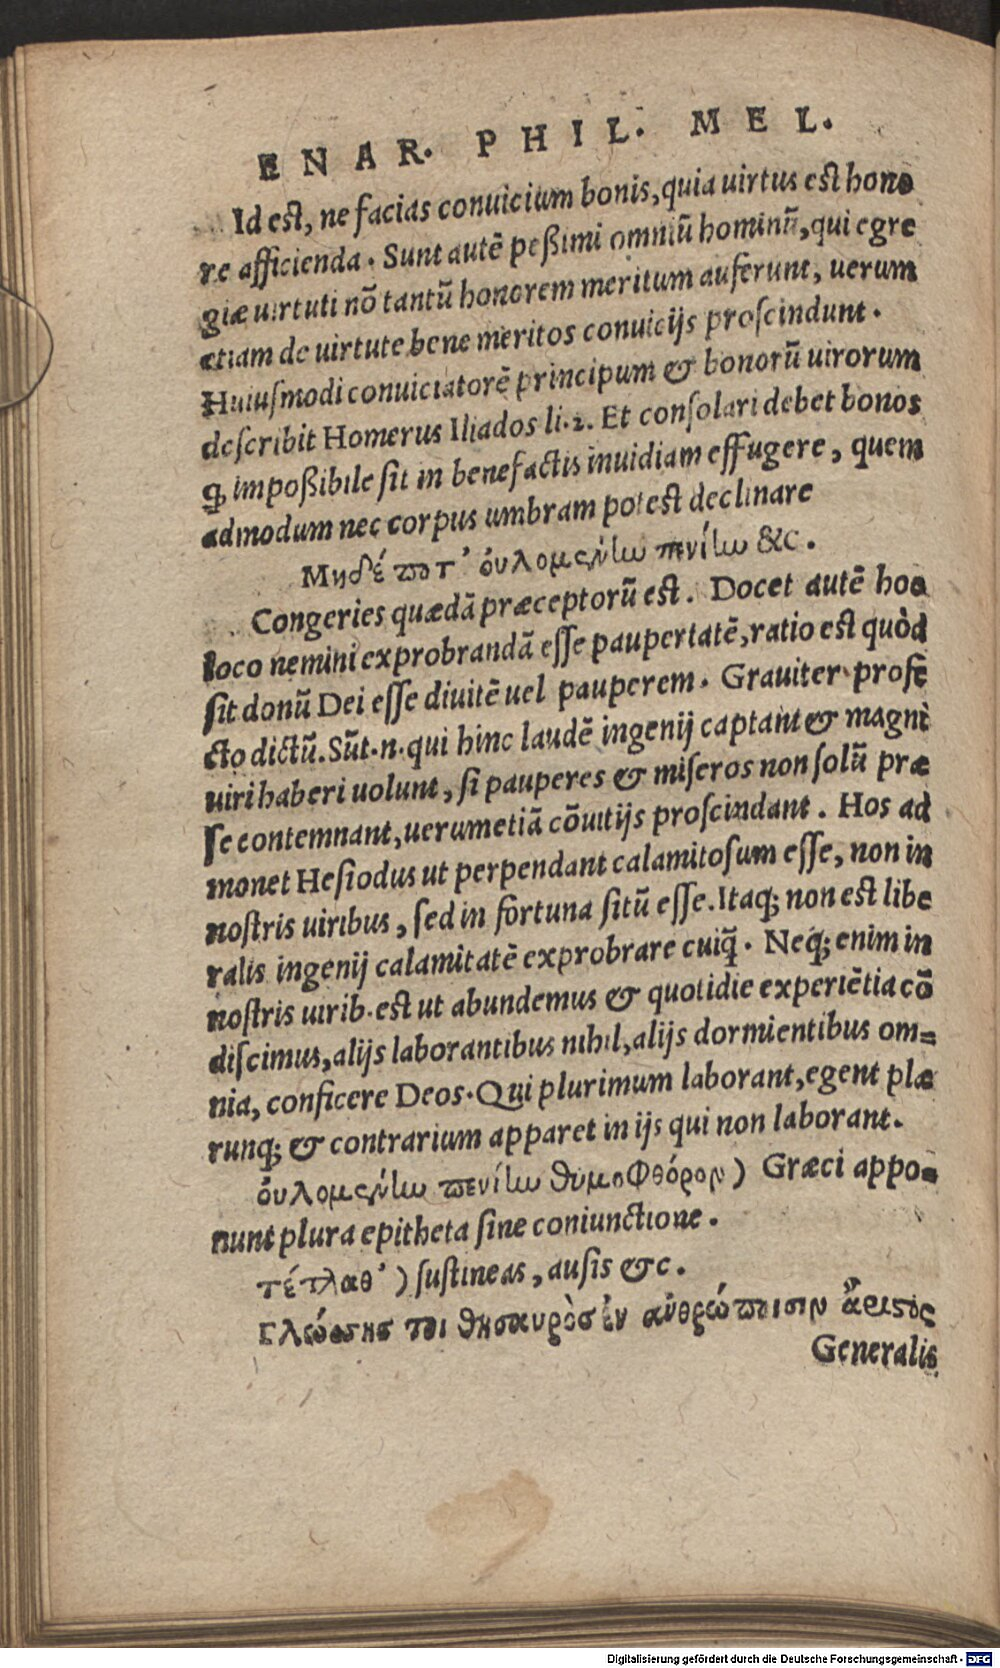 ENAR. PHIL. MEL.
Id est, ne facias conuicium bonis, quia uirtus est hono
re afficienda. Sunt autē peßimi omniū hominū, qui egre
giæ uirtuti nō tantū honorem meritum auferunt, uerum
etiam de uirtute bene meritos conuicijs proscindunt.
Huiusmodi conuiciatorē principum & bonorū uirorum
describit Homerus Iliados li.2. Et consolari debet bonos
ꝙ impoßibile sit in benefactis inuidiam effugere, quem
admodum nec corpus umbram potest declinare
Μηδέ ποτ’ οὐλομένίω πενίίω &c.
Congeries quædā præceptorū est. Docet autē hoc
loco nemini exprobrandā esse paupertatē, ratio est quòd
sit donū Dei esse diuitē uel pauperem. Grauiter profe
cto dictū. Sūt.n.qui hinc laudē ingenij captant & magni
uiri haberi uolunt, si pauperes & miseros non solū præ
se contemnant, uerumetiā cōuitijs proscindant. Hos ad
monet Hesiodus ut perpendant calamitosum esse, non in
nostris uiribus, sed in fortuna sitū esse. Itaq; non est libe
ralis ingenij calamitatē exprobrare cuiq̄. Neq; enim in
nostris uirib. est ut abundemus & quotidie experiētia cō
discimus, alijs laborantibus nihil, alijs dormientibus om=
nia, conficere Deos. Qui plurimum laborant, egent plæ
runq; & contrarium apparet in ijs qui non laborant.
οὐλομένίω πενίίω θυμοφθόρον) Græci appo=
nunt plura epitheta sine coniunctione.
τέτλαθ’) sustineas, ausis &c.
Γλώσσης τοι θησαυρὸς ἐν ἀνθρώποισιν ἄριστος
Generalis
Digitalisierung gefördert durch die Deutsche Forschungsgemeinschaft - DFG